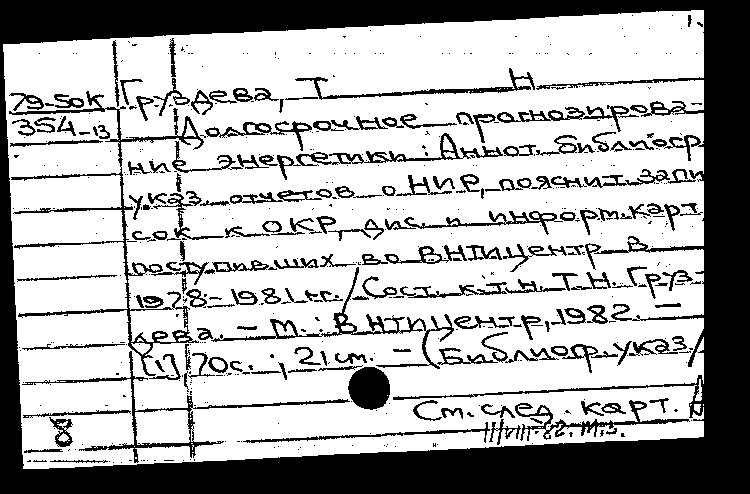 1.
79-50К Груздева, Т Н
354-13 Долгосрочное прогнозирова-
ние энергетики: Аннот. библиогр.
указ. отчетов о НИР, пояснит. запи
сок к ОКР, дис. и информ. карт,
поступивших во ВНТИЦентр в
1978-1981 гг. / Сост. к.т.н. Т.Н. Груз-
дева. - М.: ВНТИЦентр, 1982. -
[1], 70с.; 21 см. - (Библиогр. указ /
См. след. карт.
8